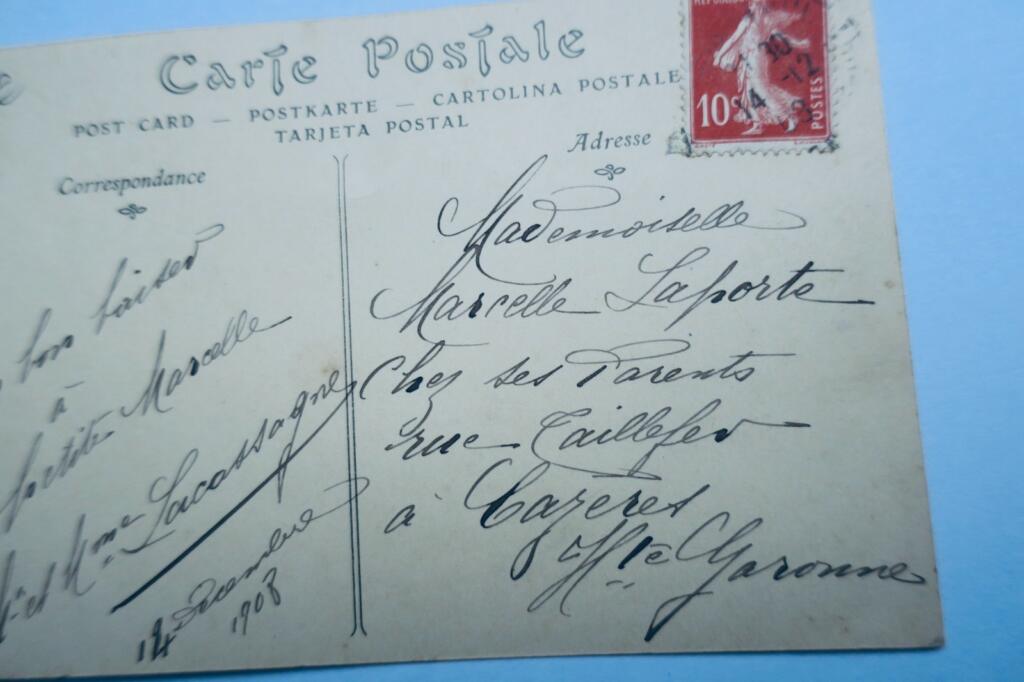 Carte Postale
POST CARD — POSTKARTE — CARTOLINA POSTALE
TARJETA POSTAL
Correspondance
bon baiser
à
petite Marcelle
et Mme Lacassagne
14 Décembre
1908
Adresse
Mademoiselle
Marcelle Laporte
Chez ses Parents
rue Taillefer
à Cazères
Hte Garonne
10c
POSTES
14 -12